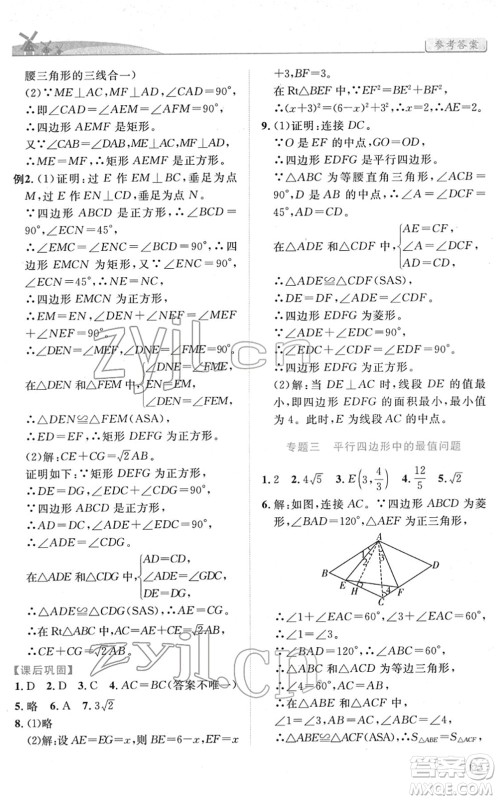 参考答案
腰三角形的三线合一)
(2)∵ME⊥AC,MF⊥AD,∠CAD=90°,
∴∠AEM=∠MFA=∠CAD=90°.
∴四边形AEMF是矩形.
又∵∠CAB=∠DAB,ME⊥AC,MF⊥AD,
∴ME=MF.∴矩形AEMF为正方形.
例2. (1)证明:过E作EM⊥BC,垂足为点
M,过E作EN⊥CD,垂足为点N,
∵四边形ABCD是正方形,∴∠BCD=
90°,∠ECN=45°.
∴∠EMC=∠ENC=∠BCD=90°.
∴四边形EMCN为矩形.又∵∠ENC=
90°,∠ECN=45°,∴NE=NC.
∴四边形EMCN为正方形.
∵∠DEN+∠NEF=∠MEF+∠NEF
=90°,
∴∠DEN=∠MEF.
在△DEN和△FEM中,{∠DNE=∠FME, EN=EM, ∠DEN=∠FEM,
∴△DEN≌△FEM(ASA).
∴ED=EF.∴矩形DEFG为正方形.
(2)解:CG+CE=√2AB.
证明如下:∵矩形DEFG为正方形,
∴DE=DG,∠EDC+∠CDG=90°.
∵四边形ABCD是正方形,
∴AD=DC,∠ADE+∠EDC=90°.
∴∠ADE=∠CDG.
在△ADE和△CDG中,{AD=CD, ∠ADE=∠CDG, DE=DG,
∴△ADE≌△CDG(SAS).∴AE=CG.
∵在Rt△ABC中,AC=√2AB,
∴CE+AE=√2AB.
∴CE+CG=√2AB.
【课后巩固】
1. D 2. D 3. C 4. AC=BD(答案不唯一)
5. 略 6. A 7. 3√2
8. (1)略
(2)解:设AE=EG=x,则BE=6-x,EF=x
+3,BF=3.
在Rt△BEF中,BE²+BF²=EF²,
∴(x+3)²=(6-x)²+3²,解得x=2.
∴AE=2.
9. (1)证明:连接DC.
∵O是EF的中点,GO=OD,
∴四边形EDFG是平行四边形.
∵△ABC为等腰直角三角形,∠ACB=
90°,D是AB的中点,
∴∠A=∠DCF=45°,AD=CD.
在△ADE和△CDF中,{AE=CF, ∠A=∠DCF, AD=CD,
∴△ADE≌△CDF(SAS).
∴DE=DF,∠ADE=∠CDF.
∴四边形EDFG为菱形.
∵∠ADE+∠EDC=90°,
∴∠EDC+∠CDF=∠EDF=90°.
∴四边形EDFG是正方形.
(2)解:当DE⊥AC时,线段DE的值最
小,即四边形EDFG的面积最小,最小值
为4.此时,E为线段AC的中点.
专题三 平行四边形中的最值问题
1. 2 2. 4√5 3. E(3,4/3) 4. 12/5 5. √2
6. 解:如图,连接AC.∵四边形ABCD为菱
形,∠BAD=120°,△AEF为正三角形,
A
B
D
E
H
C
F
∴∠1+∠EAC=60°,∠3+∠EAC=60°.
∴∠1=∠3.
∵∠BAD=120°,
∴∠BAC=60°,∠ABC=60°.
∴△ABC和△ACD为等边三角形.
∴∠4=60°,AC=AB.
∴∠ABE=∠4.
∴△ABE≌△ACF(ASA).∴S△ABE=S△ACF.
zyjl.cn
zyjl.cn
答案圈